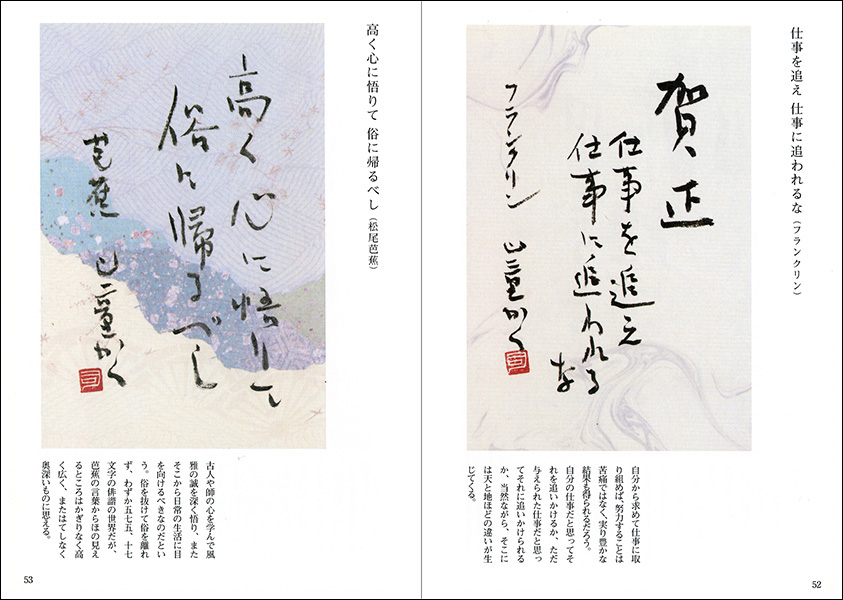 仕事を追え 仕事に追われるな(フランクリン)
賀正
仕事を追え
仕事に追われるな
フランクリン 山童かく
自分から求めて仕事に取
り組めば、努力することは
苦痛ではなく、実り豊かな
結果も得られるだろう。
自分の仕事だと思ってそ
れを追いかけるか、ただ
与えられた仕事だと思っ
てそれに追いかけられる
か、当然ながら、そこに
は天と地ほどの違いが生
じてくる。
52
高く心に悟りて 俗に帰るべし(松尾芭蕉)
高く心に悟りて
俗に帰るべし
芭蕉 山童かく
古人や師の心を学んで風
雅の誠を深く悟り、また
そこから日常の生活に目
を向けるべきなのだとい
う。俗を抜けて俗を離れ
ず、わずか五七五、十七
文字の俳諧の世界だが、
芭蕉の言葉からほの見え
るところはかぎりなく高
く広く、またはてしなく
奥深いものに思える。
53